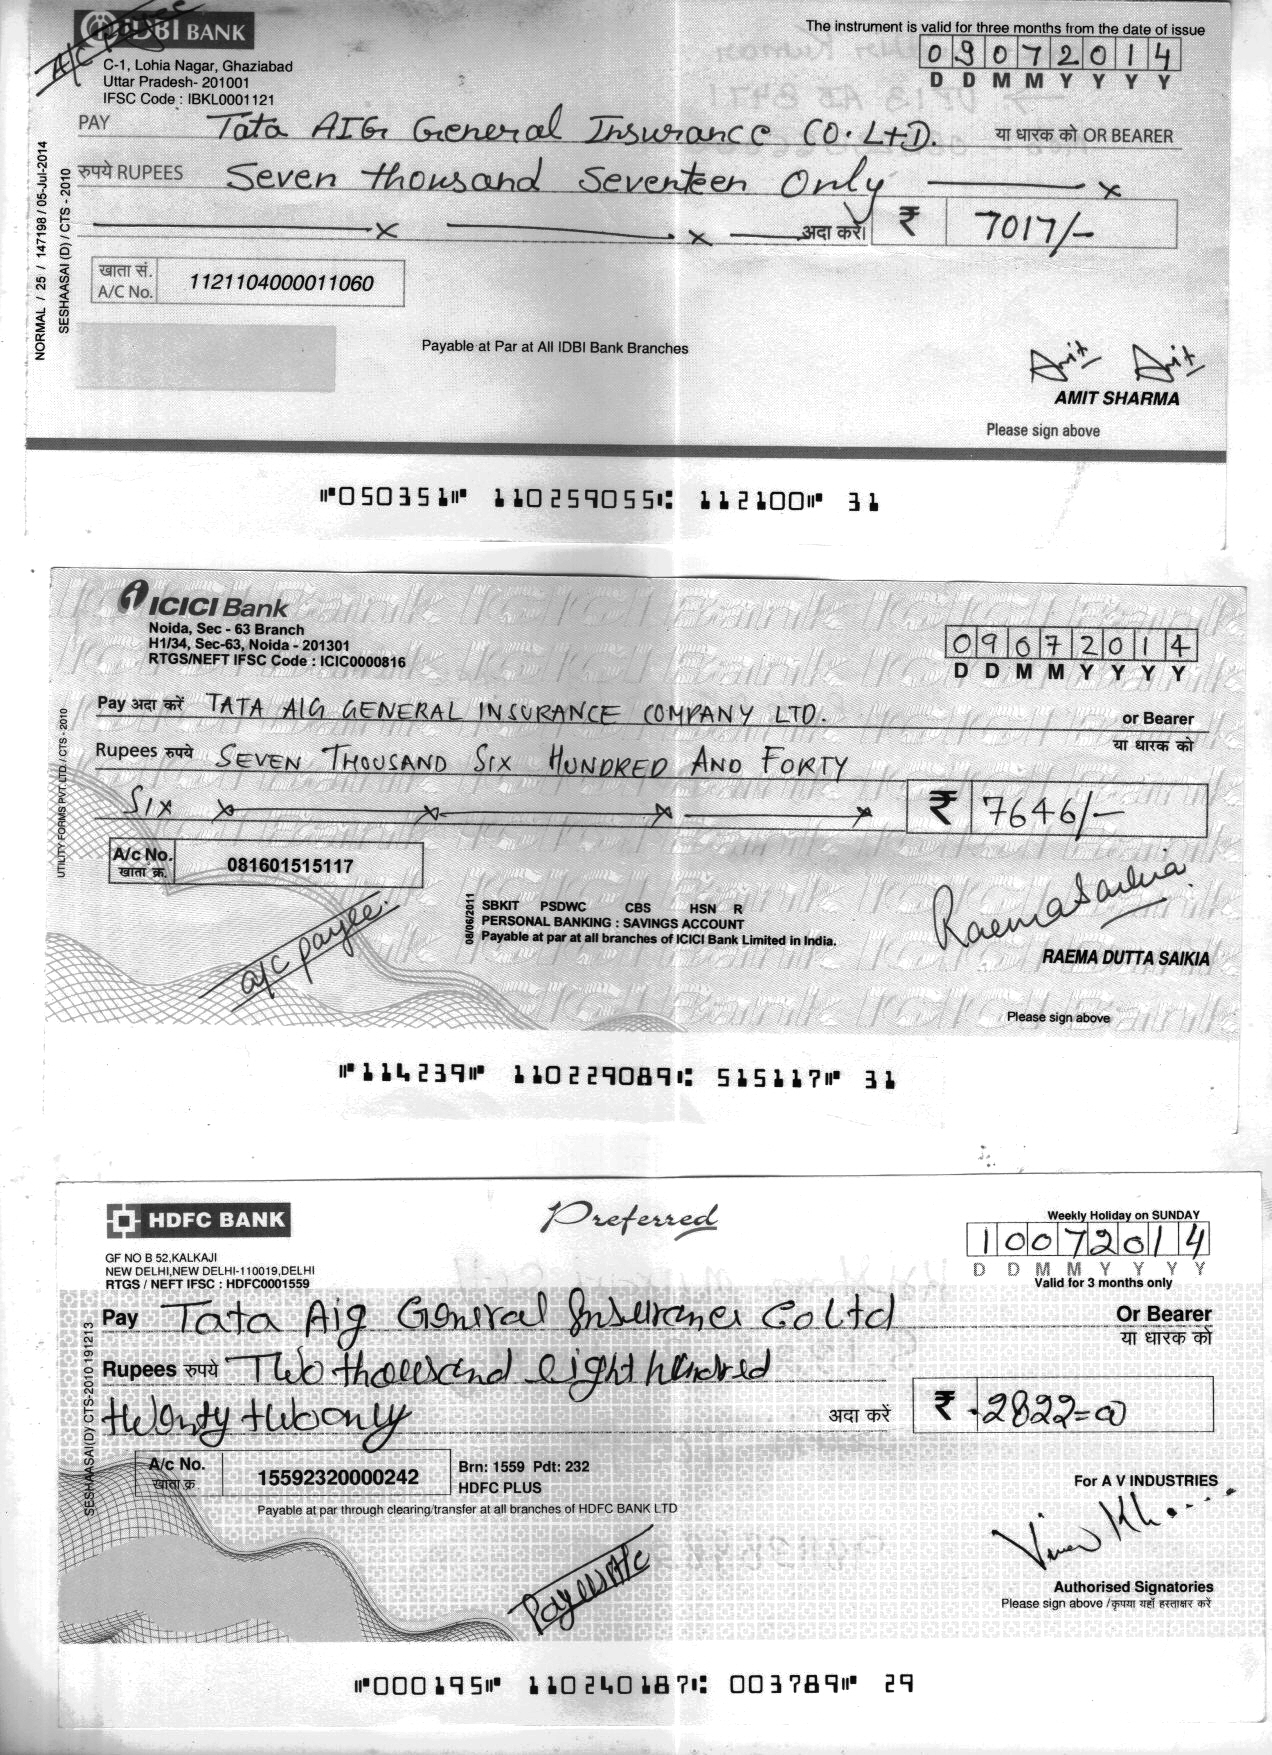 A/C Payee
IDBI BANK
C-1, Lohia Nagar, Ghaziabad
Uttar Pradesh- 201001
IFSC Code : IBKL0001121
The instrument is valid for three months from the date of issue
09072014
D D M M Y Y Y Y
PAY Tata AIG General Insurance CO. LTD. या धारक को OR BEARER
रुपये RUPEES Seven thousand Seventeen Only x
x x अदा करें। ₹ 7017/-
खाता सं.
A/C No. 1121104000011060
Payable at Par at All IDBI Bank Branches
Amit Amit
AMIT SHARMA
Please sign above
NORMAL / 25 / 147198 / 05-Jul-2014
SESHAASAI (D) / CTS - 2010
⑈050351⑈ 110259055⑆ 112100⑈ 31
ICICI Bank
Noida, Sec - 63 Branch
H1/34, Sec-63, Noida - 201301
RTGS/NEFT IFSC Code : ICIC0000816
09072014
D D M M Y Y Y Y
Pay अदा करें TATA AIG GENERAL INSURANCE COMPANY LTD. or Bearer
या धारक को
Rupees रुपये SEVEN THOUSAND SIX HUNDRED AND FORTY
SIX x x x x ₹ 7646/-
A/c No.
खाता क्र. 081601515117
a/c payee.
08/06/2011
SBKIT PSDWC CBS HSN R
PERSONAL BANKING : SAVINGS ACCOUNT
Payable at par at all branches of ICICI Bank Limited in India.
Raema Saikia
RAEMA DUTTA SAIKIA
Please sign above
UTILITY FORMS PVT.LTD./ CTS - 2010
⑈114239⑈ 110229089⑆ 515117⑈ 31
HDFC BANK
Preferred
GF NO B 52,KALKAJI
NEW DELHI,NEW DELHI-110019,DELHI
RTGS / NEFT IFSC : HDFC0001559
Weekly Holiday on SUNDAY
10072014
D D M M Y Y Y Y
Valid for 3 months only
Pay Tata Aig General Insurance Co Ltd Or Bearer
या धारक को
Rupees रुपये Two thousand eight hundred
twenty two only अदा करें ₹ 2822=00
A/c No.
खाता क्र. 15592320000242
Brn: 1559 Pdt: 232
HDFC PLUS
Payable at par through clearing/transfer at all branches of HDFC BANK LTD
For A V INDUSTRIES
Payees A/c
Authorised Signatories
Please sign above / कृपया यहाँ हस्ताक्षर करें
SESHAASAI(D)/ CTS-2010 191213
⑈000195⑈ 110240187⑆ 003789⑈ 29